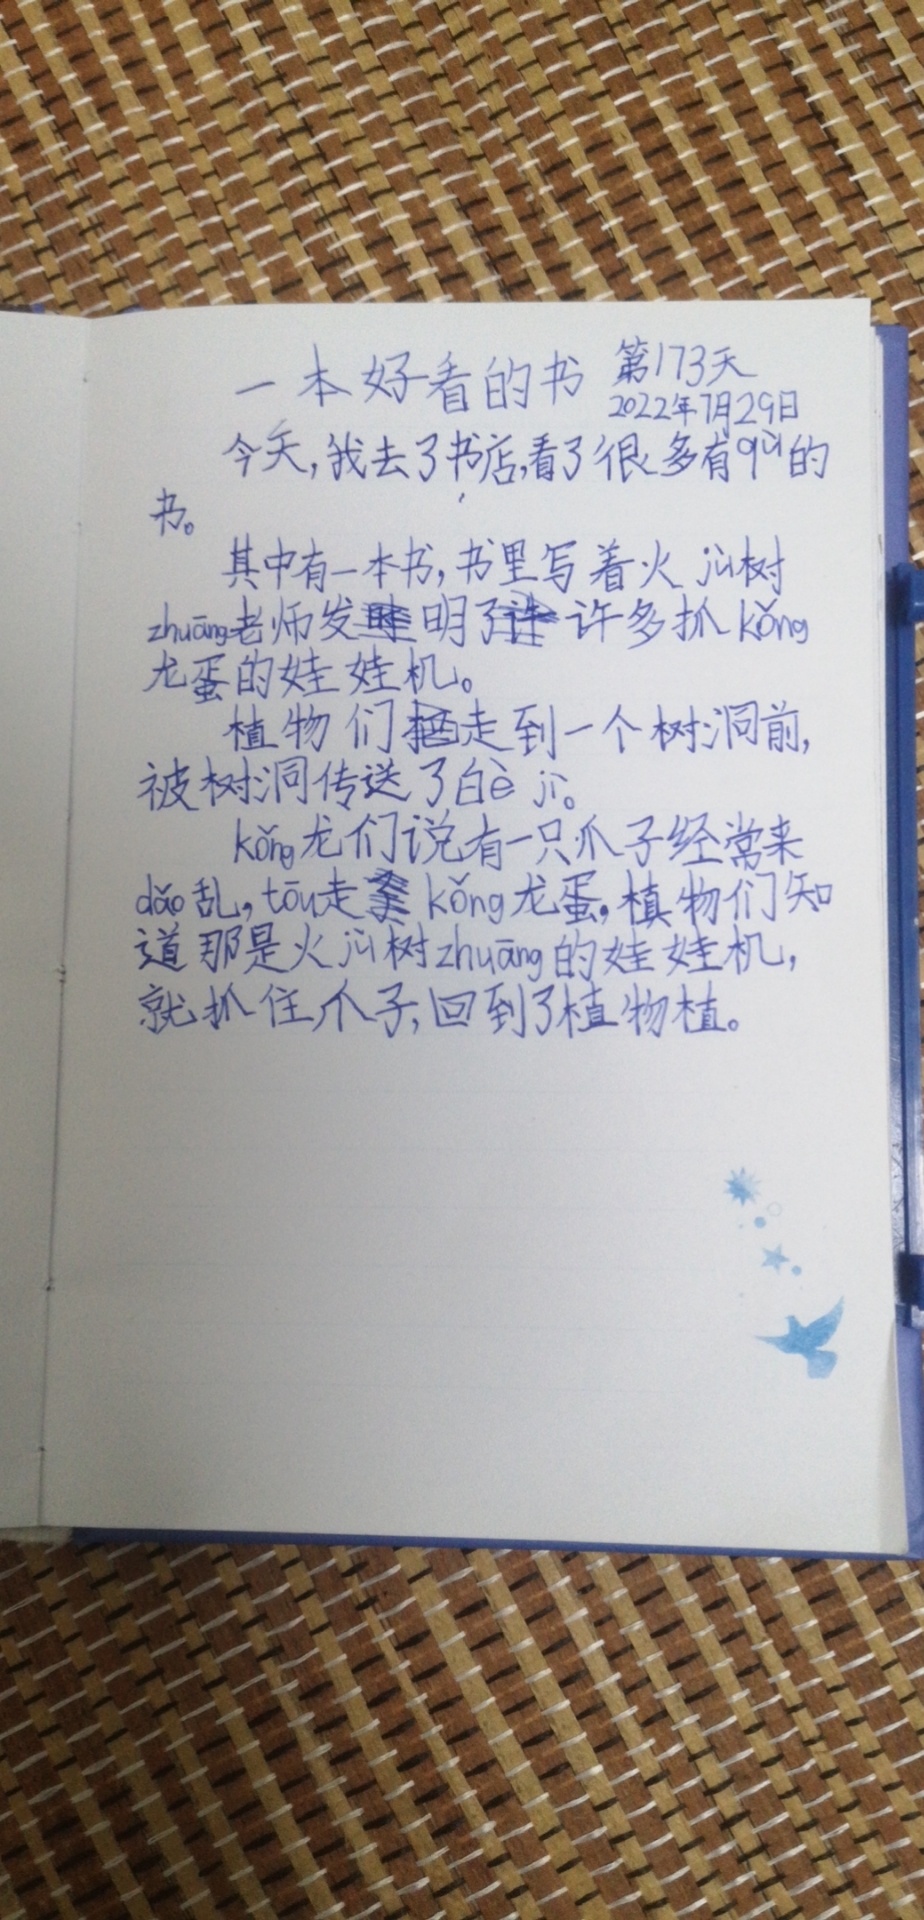 一本好看的书 第173天
2022年7月29日
今天,我去了书店,看了很多有qù的
书。
其中有一本书,书里写着火jù树
zhuāng老师发明了许多抓kǒng
龙蛋的娃娃机。
植物们走到一个树洞前,
被树洞传送了白è jì。
kǒng龙们说有一只爪子经常来
dǎo乱,tōu走kǒng龙蛋,植物们知
道那是火jù树zhuāng的娃娃机,
就抓住爪子,回到了植物植。